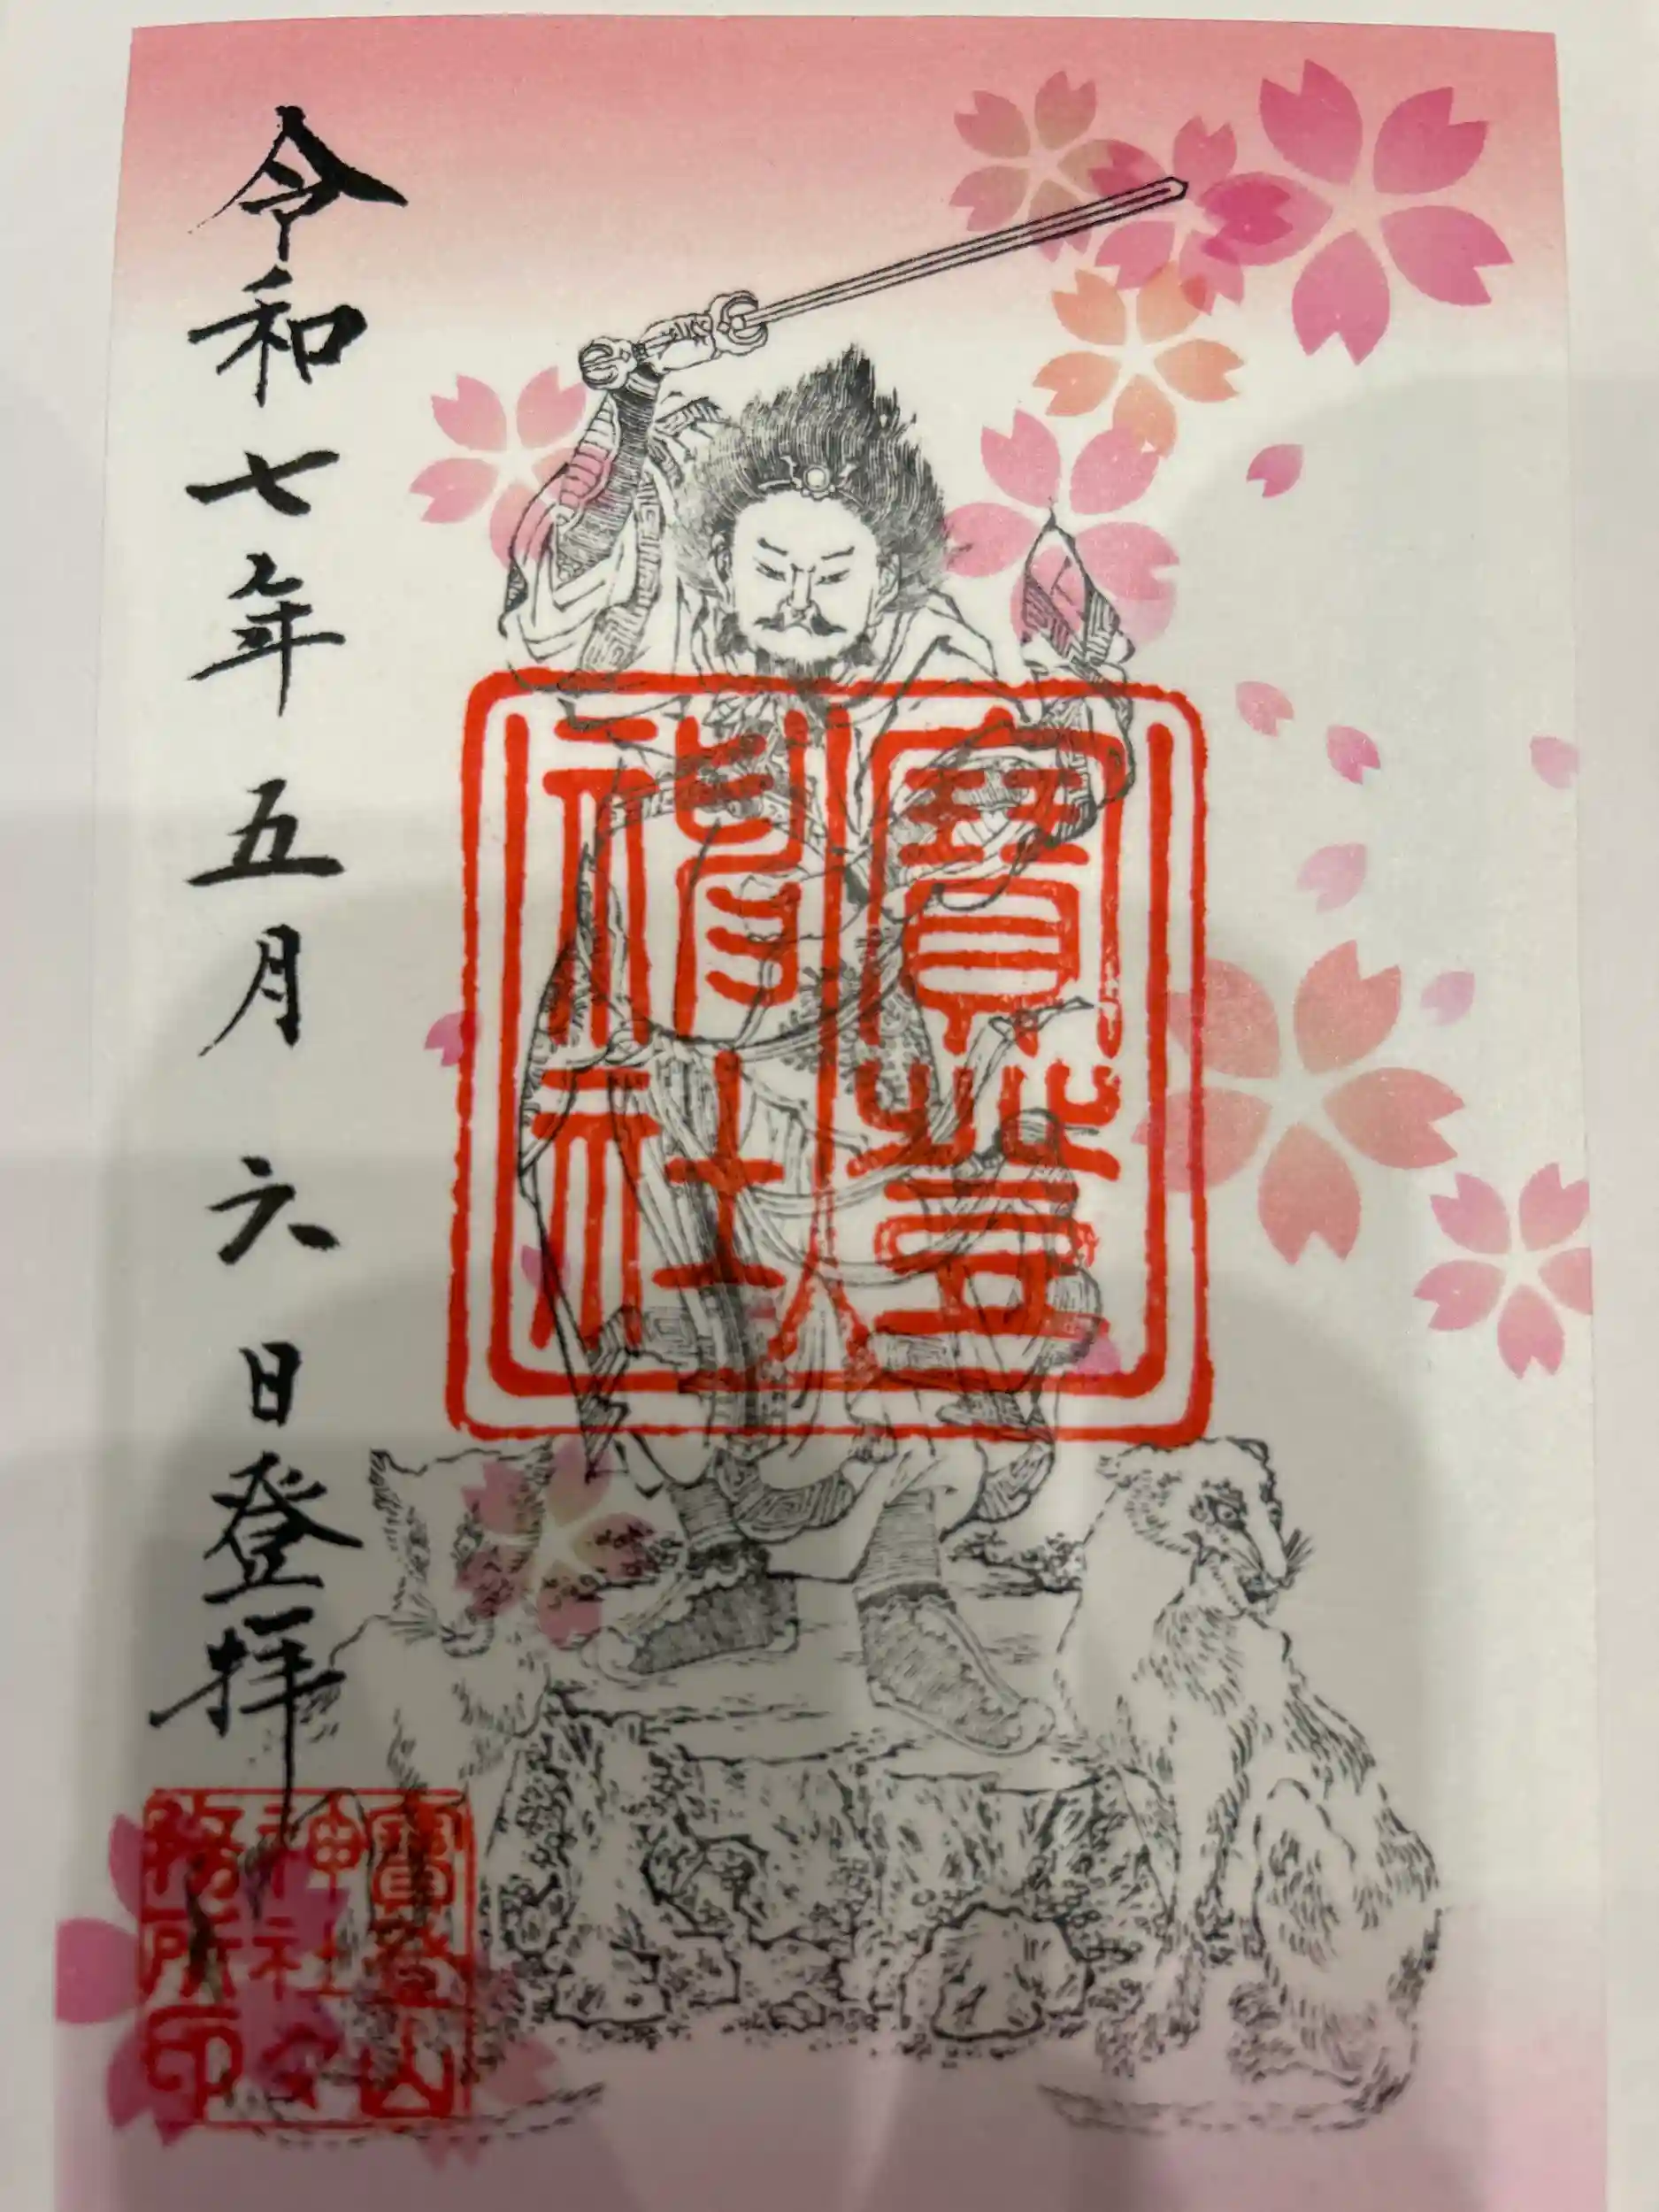 寶登
神社
令和七年五月六日登拝
寶登山
神社々
務所印